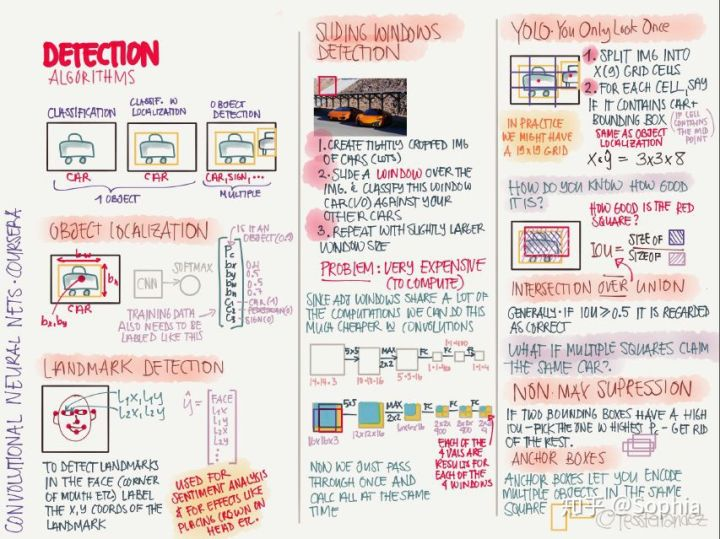 CONVOLUTIONAL NEURAL NETS · COURSERA
DETECTION
ALGORITHMS
CLASSIFICATION
CLASSIF. W
LOCALIZATION
OBJECT
DETECTION
CAR
CAR
CAR, SIGN, ...
1 OBJECT
MULTIPLE
OBJECT LOCALIZATION
bw
bh
bx, by
CAR
CNN
SOFTMAX
IS IT AN
OBJECT (0.1)
Pc
bx
by
bh
bw
C1
C2
C3
0.5
0.5
0.7
CAR (1)
PEDESTRIAN (0)
SIGN (0)
TRAINING DATA
ALSO NEEDS TO BE
LABELED LIKE THIS
LANDMARK DETECTION
L1X, L1Y
L2X, L2Y
ŷ =
FACE
L1X
L1Y
L2X
L2Y
TO DETECT LANDMARKS
IN THE FACE (CORNER
OF MOUTH ETC) LABEL
THE X,Y COORDS OF THE
LANDMARK
USED FOR
SENTIMENT ANALYSIS
& FOR EFFECTS LIKE
PLACING CROWN ON
HEAD ETC.
SLIDING WINDOWS
DETECTION
1. CREATE TIGHTLY CROPPED IMG
OF CARS (LOTS)
2. SLIDE A WINDOW OVER THE
IMG. & CLASSIFY THIS WINDOW
CAR(1/0) AGAINST YOUR
OTHER CARS
3. REPEAT WITH SLIGHTLY LARGER
WINDOW SIZE
PROBLEM: VERY EXPENSIVE
(TO COMPUTE)
SINCE ADJ WINDOWS SHARE A LOT
OF THE COMPUTATIONS WE CAN DO THIS
MUCH CHEAPER W CONVOLUTIONS
5×5
MAX
2×2
FC
FC
14×14×3
10×10×16
5×5×16
5×5
MAX
2×2
FC
FC
FC
16×16×3
12×12×16
EACH OF THE
4 VALS ARE
RESULTS FOR
EACH OF THE
4 WINDOWS
NOW WE JUST PASS
THROUGH ONCE AND
CALC ALL AT THE SAME
TIME
YOLO · You Only Look Once
1. SPLIT IMG INTO
X(9) GRID CELLS
2. FOR EACH CELL, SAY
IF IT CONTAINS CAR +
BOUNDING BOX
(IF CELL
CONTAINS
THE MID
POINT)
IN PRACTICE
WE MIGHT HAVE
A 19×19 GRID
SAME AS OBJECT
LOCALIZATION
X & Y = 3×3×8
HOW DO YOU KNOW HOW GOOD
IT IS?
HOW GOOD IS THE RED
SQUARE?
IOU =
SIZE OF
SIZE OF
INTERSECTION OVER UNION
GENERALLY · IF IOU ≥ 0.5 IT IS REGARDED
AS CORRECT
WHAT IF MULTIPLE SQUARES CLAIM
THE SAME CAR?
NON-MAX SUPRESSION
IF TWO BOUNDING BOXES HAVE A HIGH
IOU - PICK THE ONE W HIGHEST Pc - GET RID
OF THE REST.
ANCHOR BOXES
ANCHOR BOXES LET YOU ENCODE
MULTIPLE OBJECTS IN THE SAME
SQUARE
知乎 @Sophia
@TessFernandez